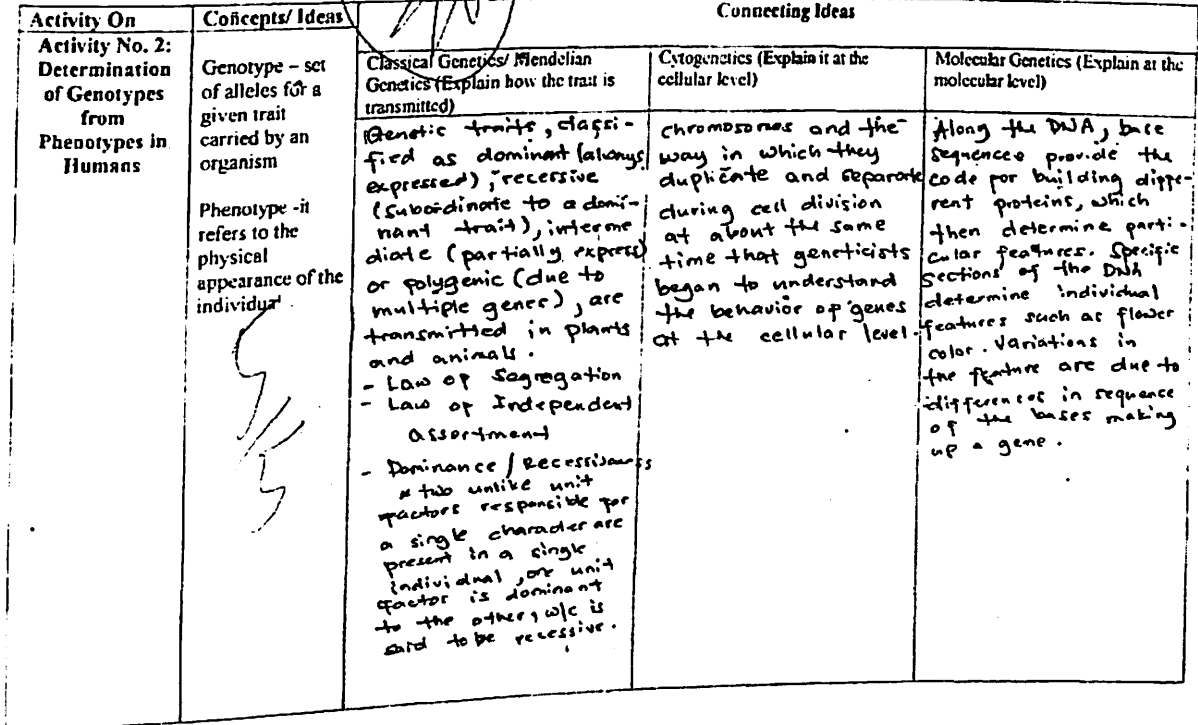 Activity On
Concepts/ Ideas
Connecting Ideas
Activity No. 2:
Determination
of Genotypes
from
Phenotypes in
Humans
Genotype – set
of alleles for a
given trait
carried by an
organism
Phenotype -it
refers to the
physical
appearance of the
individual
Classical Genetics/ Mendelian
Genetics (Explain how the trait is
transmitted)
Genetic traits, classi-
fied as dominant (always
expressed), recessive
(subordinate to a domi-
nant trait), interme
diate (partially express)
or polygenic (due to
multiple genes), are
transmitted in plants
and animals.
- Law of Segregation
- Law of Independent
assortment
- Dominance / Recessiveness
* two unlike unit
factors responsible for
a single character are
present in a single
individual, one unit
factor is dominant
to the other, w/c is
said to be recessive.
Cytogenetics (Explain it at the
cellular level)
chromosomes and the
way in which they
duplicate and separate
during cell division
at about the same
time that geneticists
began to understand
the behavior of genes
at the cellular level.
Molecular Genetics (Explain at the
molecular level)
Along the DNA, base
sequences provide the
code for building diffe-
rent proteins, which
then determine parti-
cular features. Specific
sections of the DNA
determine individual
features such as flower
color. Variations in
the feature are due to
differences in sequence
of the bases making
up a gene.